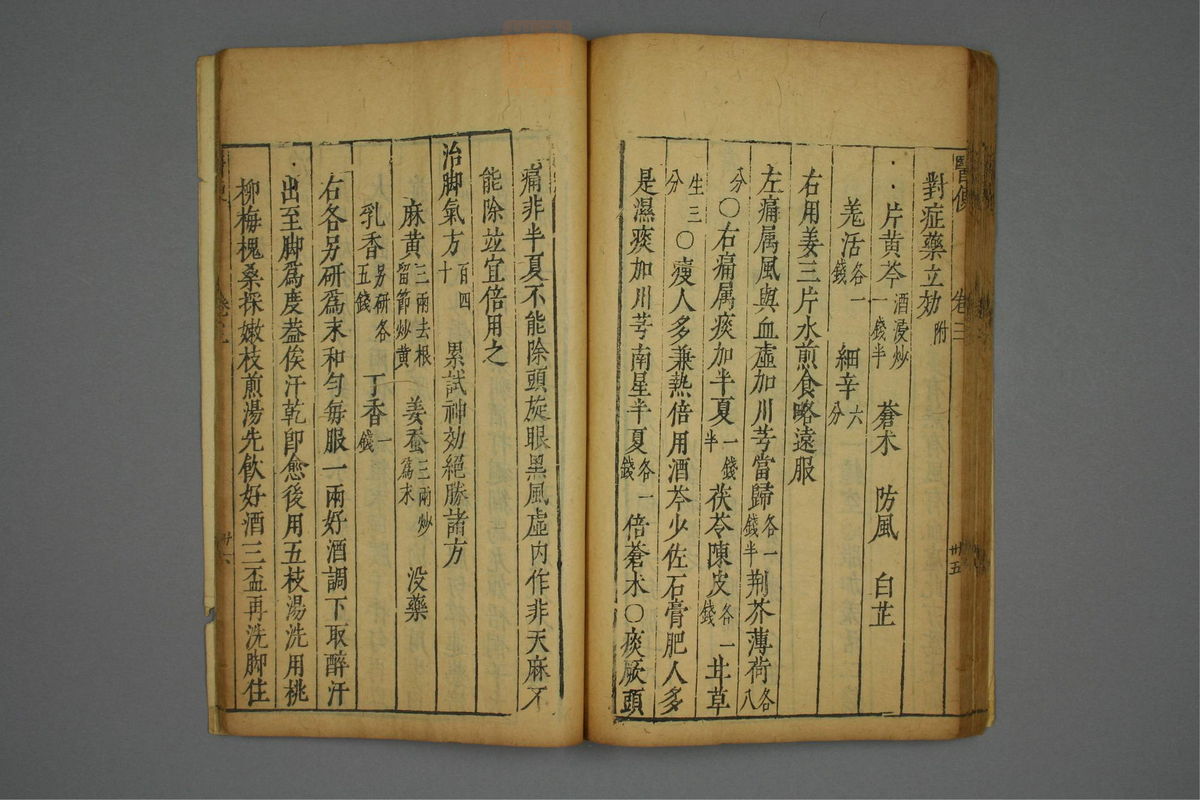 醫便 卷三 卅五
對症藥立効 附
片黄芩 酒浸炒一錢半 蒼术 防風 白芷
羗活 各一錢 細辛 六分
右用姜三片水煎食畧遠服
左痛属風與血虚加川芎當歸 各一錢半 荆芥薄荷 各八
分 〇右痛属痰加半夏 一錢半 茯苓陳皮 各一錢 甘草
生三分 〇瘦人多兼熱倍用酒芩少佐石膏肥人多
是濕痰加川芎南星半夏 各一錢 倍蒼术〇痰厥頭
痛非半夏不能除頭旋眼黑風虚内作非天麻不
能除並宜倍用之
治脚氣方 百四十 累試神効絕勝諸方
麻黄 三兩去根留節炒黄 姜蚕 三兩炒爲末 没藥
乳香 另研各五錢 丁香 一錢
右各另研爲末和勻每服一兩好酒調下取醉汗
出至脚爲度盖俟汗乾卽愈後用五枝湯洗用桃
柳梅槐桑採嫩枝煎湯先飲好酒三盃再洗脚住
卅六